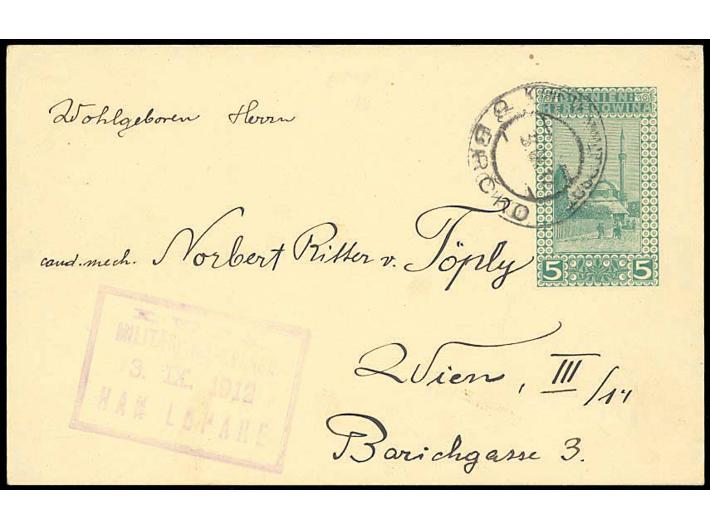 Wohlgeboren Herrn
HERZEGOWINA
BRČKO
5 5
cand. mech. Norbert Ritter v. Töply
3. IX. 1912
HAN LOPARE
Wien, III/11
Barichgasse 3.